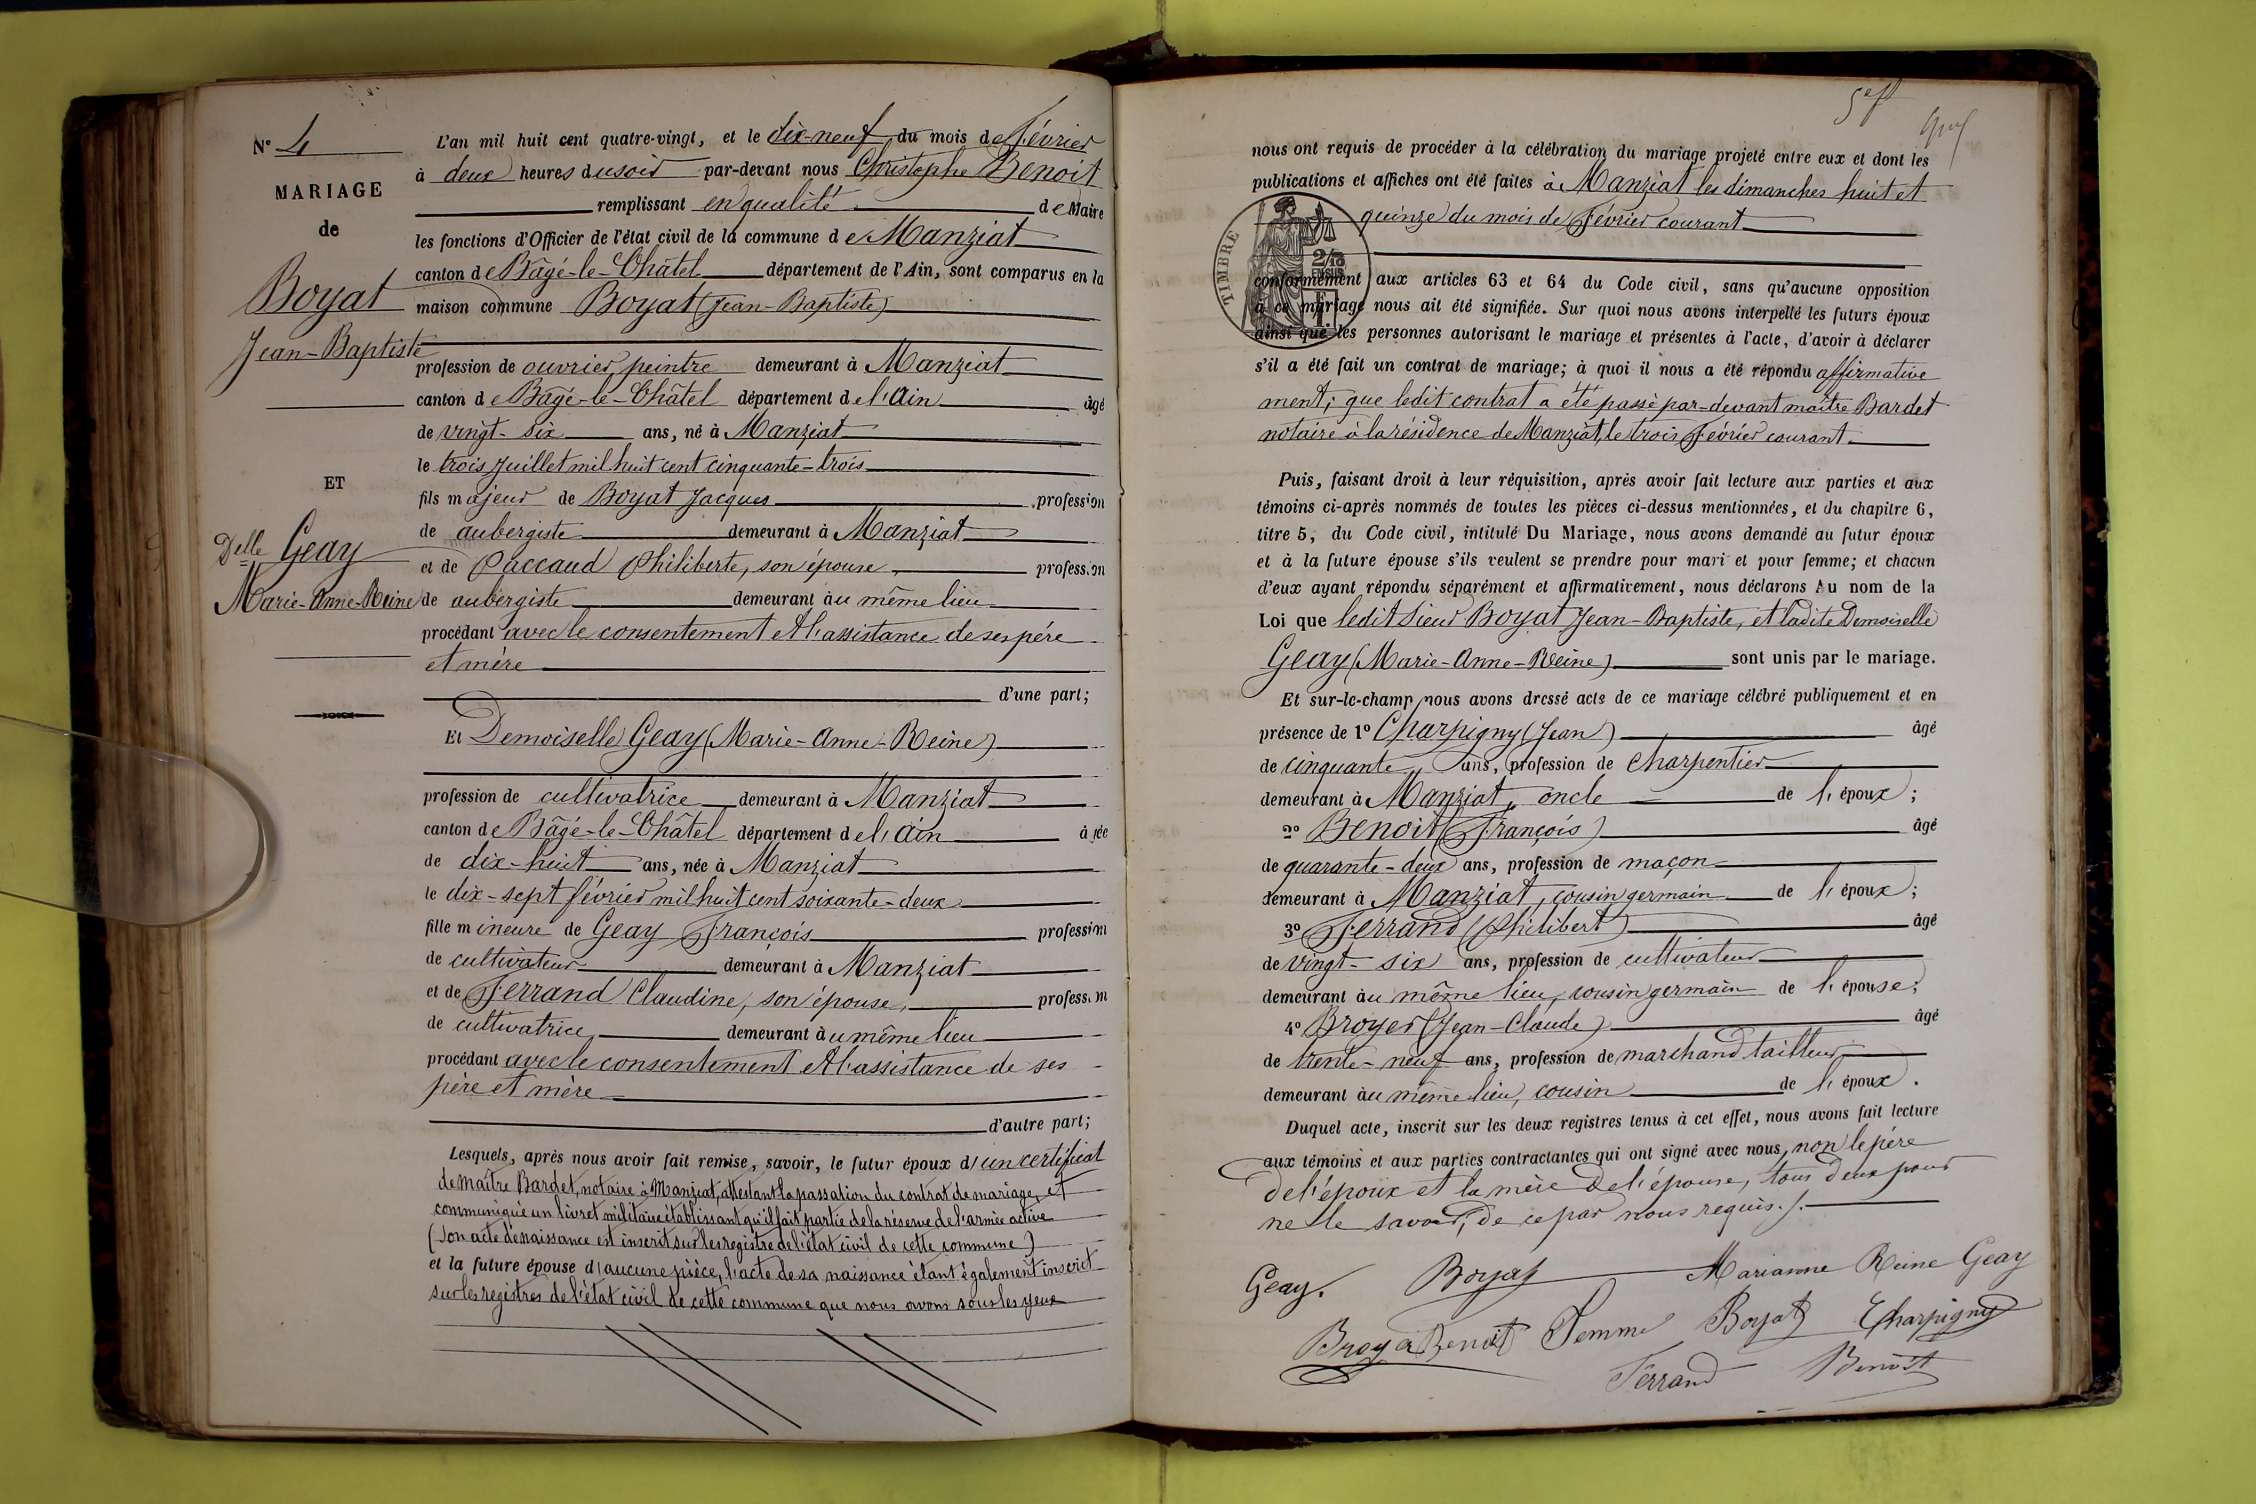 N° 4
MARIAGE
de
Boyat
Jean-Baptiste
ET
Delle Geay
Marie-Anne-Reine
L'an mil huit cent quatre-vingt, et le dix-neuf du mois de Février
à deux heures du soir par-devant nous Christophe Benoit
remplissant en qualité de Maire
les fonctions d'Officier de l'état civil de la commune de Manziat
canton de Bâgé-le-Châtel département de l'Ain, sont comparus en la
maison commune Boyat (Jean-Baptiste)
profession de ouvrier peintre demeurant à Manziat
canton de Bâgé-le-Châtel département de l'Ain âgé
de vingt-six ans, né à Manziat
le trois Juillet mil huit cent cinquante-trois
fils majeur de Boyat Jacques profession
de aubergiste demeurant à Manziat
et de Paccaud Philiberte, son épouse, profession
de aubergiste demeurant au même lieu
procédant avec le consentement et l'assistance de ses père
et mère
d'une part;
Et Demoiselle Geay (Marie-Anne-Reine)
profession de cultivatrice demeurant à Manziat
canton de Bâgé-le-Châtel département de l'Ain âgée
de dix-huit ans, née à Manziat
le dix-sept février mil huit cent soixante-deux
fille mineure de Geay François profession
de cultivateur demeurant à Manziat
et de Ferrand Claudine, son épouse, profession
de cultivatrice demeurant au même lieu
procédant avec le consentement et l'assistance de ses
père et mère
d'autre part;
Lesquels, après nous avoir fait remise, savoir, le futur époux d'un certificat
de maître Bardet, notaire à Manziat, attestant la passation du contrat de mariage, et
communiqué un livret militaire établissant qu'il fait partie de la réserve de l'armée active
(Son acte de naissance est inscrit sur les registre de l'état civil de cette commune)
et la future épouse d'aucune pièce, l'acte de sa naissance étant également inscrit
sur les registres de l'état civil de cette commune que nous avons sous les yeux
nous ont requis de procéder à la célébration du mariage projeté entre eux et dont les
publications et affiches ont été faites à Manziat les dimanches huit et
quinze du mois de Février courant
TIMBRE
conformément aux articles 63 et 64 du Code civil, sans qu'aucune opposition
à ce mariage nous ait été signifiée. Sur quoi nous avons interpellé les futurs époux
ainsi que les personnes autorisant le mariage et présentes à l'acte, d'avoir à déclarer
s'il a été fait un contrat de mariage; à quoi il nous a été répondu affirmative
ment; que ledit contrat a été passé par-devant maître Bardet
notaire à la résidence de Manziat, le trois Février courant.
Puis, faisant droit à leur réquisition, après avoir fait lecture aux parties et aux
témoins ci-après nommés de toutes les pièces ci-dessus mentionnées, et du chapitre 6,
titre 5, du Code civil, intitulé Du Mariage, nous avons demandé au futur époux
et à la future épouse s'ils veulent se prendre pour mari et pour femme; et chacun
d'eux ayant répondu séparément et affirmativement, nous déclarons Au nom de la
Loi que ledit Sieur Boyat Jean-Baptiste, et ladite Demoiselle
Geay (Marie-Anne-Reine) sont unis par le mariage.
Et sur-le-champ nous avons dressé acte de ce mariage célébré publiquement et en
présence de 1° Charpigny (Jean) âgé
de cinquante ans, profession de charpentier
demeurant à Manziat, oncle de l'époux;
2° Benoit (François) âgé
de quarante-deux ans, profession de maçon
demeurant à Manziat, cousin germain de l'époux;
3° Ferrand (Philibert) âgé
de vingt-six ans, profession de cultivateur
demeurant au même lieu, cousin germain de l'épouse;
4° Broyer (Jean-Claude) âgé
de trente-neuf ans, profession de marchand tailleur
demeurant au même lieu, cousin de l'époux.
Duquel acte, inscrit sur les deux registres tenus à cet effet, nous avons fait lecture
aux témoins et aux parties contractantes qui ont signé avec nous, non le père
de l'époux et la mère de l'épouse, tous deux pour
ne le savoir, de ce par nous requis./.
Geay. Boyat Marianne Reine Geay
Broyer Benoit Femme Boyat Charpigny
Ferrand Benoit